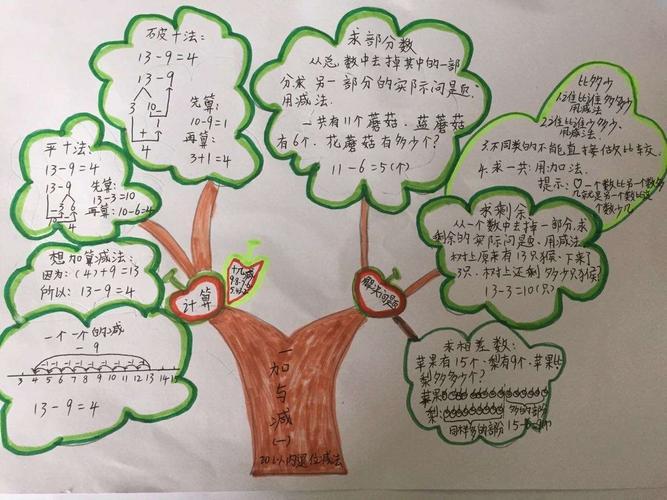 破十法:
13-9=4
13-9
3 10
1
+
4
先算:
10-9=1
再算:
3+1=4
平十法:
13-9=4
13-9
3 6
10
4
先算:
13-3=10
再算: 10-6=4
想加算减法:
因为: (4)+9=13
所以: 13-9=4
一个一个的减
-9
3 4 5 6 7 8 9 10 11 12 13 14 15
13-9=4
计算
十几减
一加与减(一)
20以内退位减法
解决问题
求部分数
从总数中去掉其中的一部
分求另一部分的实际问题
用减法.
一共有11个蘑菇.蓝蘑菇
有6个.花蘑菇有多少个?
11-6=5(个)
比多少
用减法
用减法.
3.不同类的不能直接比较.
4.求一共:用加法.
提示: 一个数比另一个数多
几就是另一个数比这
个数少几
求剩余:
从一个数中去掉一部分.求
剩余的实际问题.用减法.
树上原来有13只猴.下来了
3只.树上还剩多少只猴?
13-3=10(只)
求相差数:
苹果有15个.梨有9个.苹果比
梨多多少个?
苹果
梨:
同样多的部分
多的部分